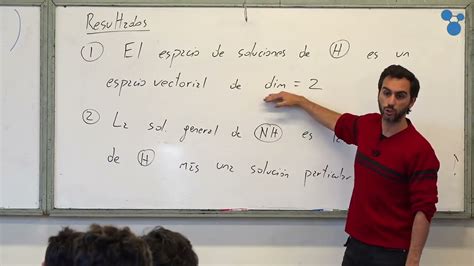 Resultados
① El espacio de soluciones de (H) es un
espacio vectorial de dim = 2
② La sol. general de (NH) es
de (H) más una solución particular